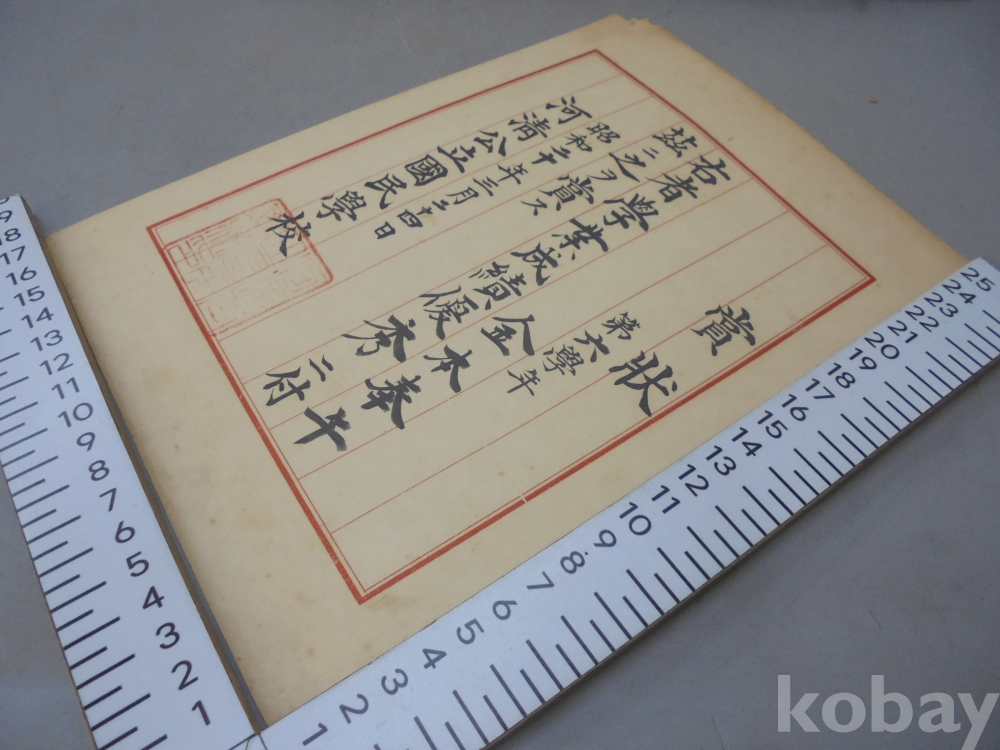 賞狀
第六學年
金本奉午
右者學業成績優秀ニ付
茲ニ之ヲ賞ス
昭和二十年三月二十四日
河清公立國民學校
18 17 16 15 14 13 12 11 10 9 8 7 6 5 4 3 2 1
1 2 3 4 5 6 7 8 9 10 11 12 13 14 15 16 17 18 19 20 21 22 23 24 25
kobay